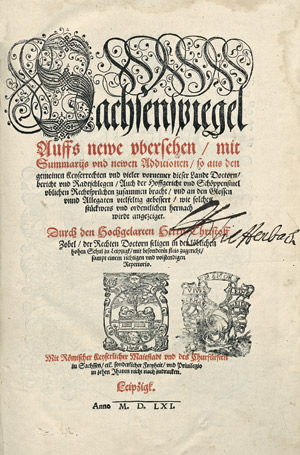 Sachsenspiegel
Auffs newe vbersehen / mit
Summarijs vnd newen Additionen / so aus den
gemeinen Keyserrechten vnd vieler vornemer dieser Lande Doctorn /
bericht vnd Radtschlegen / Auch der Hoffgericht vnd Schöppenstuel
vblichen Rechtsprüchen zusammen bracht / vnd an den Glossen
vnnd Allegaten vielfeltig gebessert / wie solches
stückweis vnd ordentlichen hernach
wirdt angezeiget.
Durch den Hochgelarten Herrn Christoff
Zobel / der Rechten Doctorn seligen in der löblichen
hohen Schul zu Leipzigk / mit besonderm fleis zugericht /
sampt einem richtigen vnd volstendigen
Repertorio.
Mit Römischer Keyserlicher Maiestadt vnd des Churfürsten
zu Sachssen / etc. sonderlicher Freyheit / vnd Priuilegio
in zehen Jharen nicht nach zudrucken.
Leipzigk.
Anno M. D. LXI.